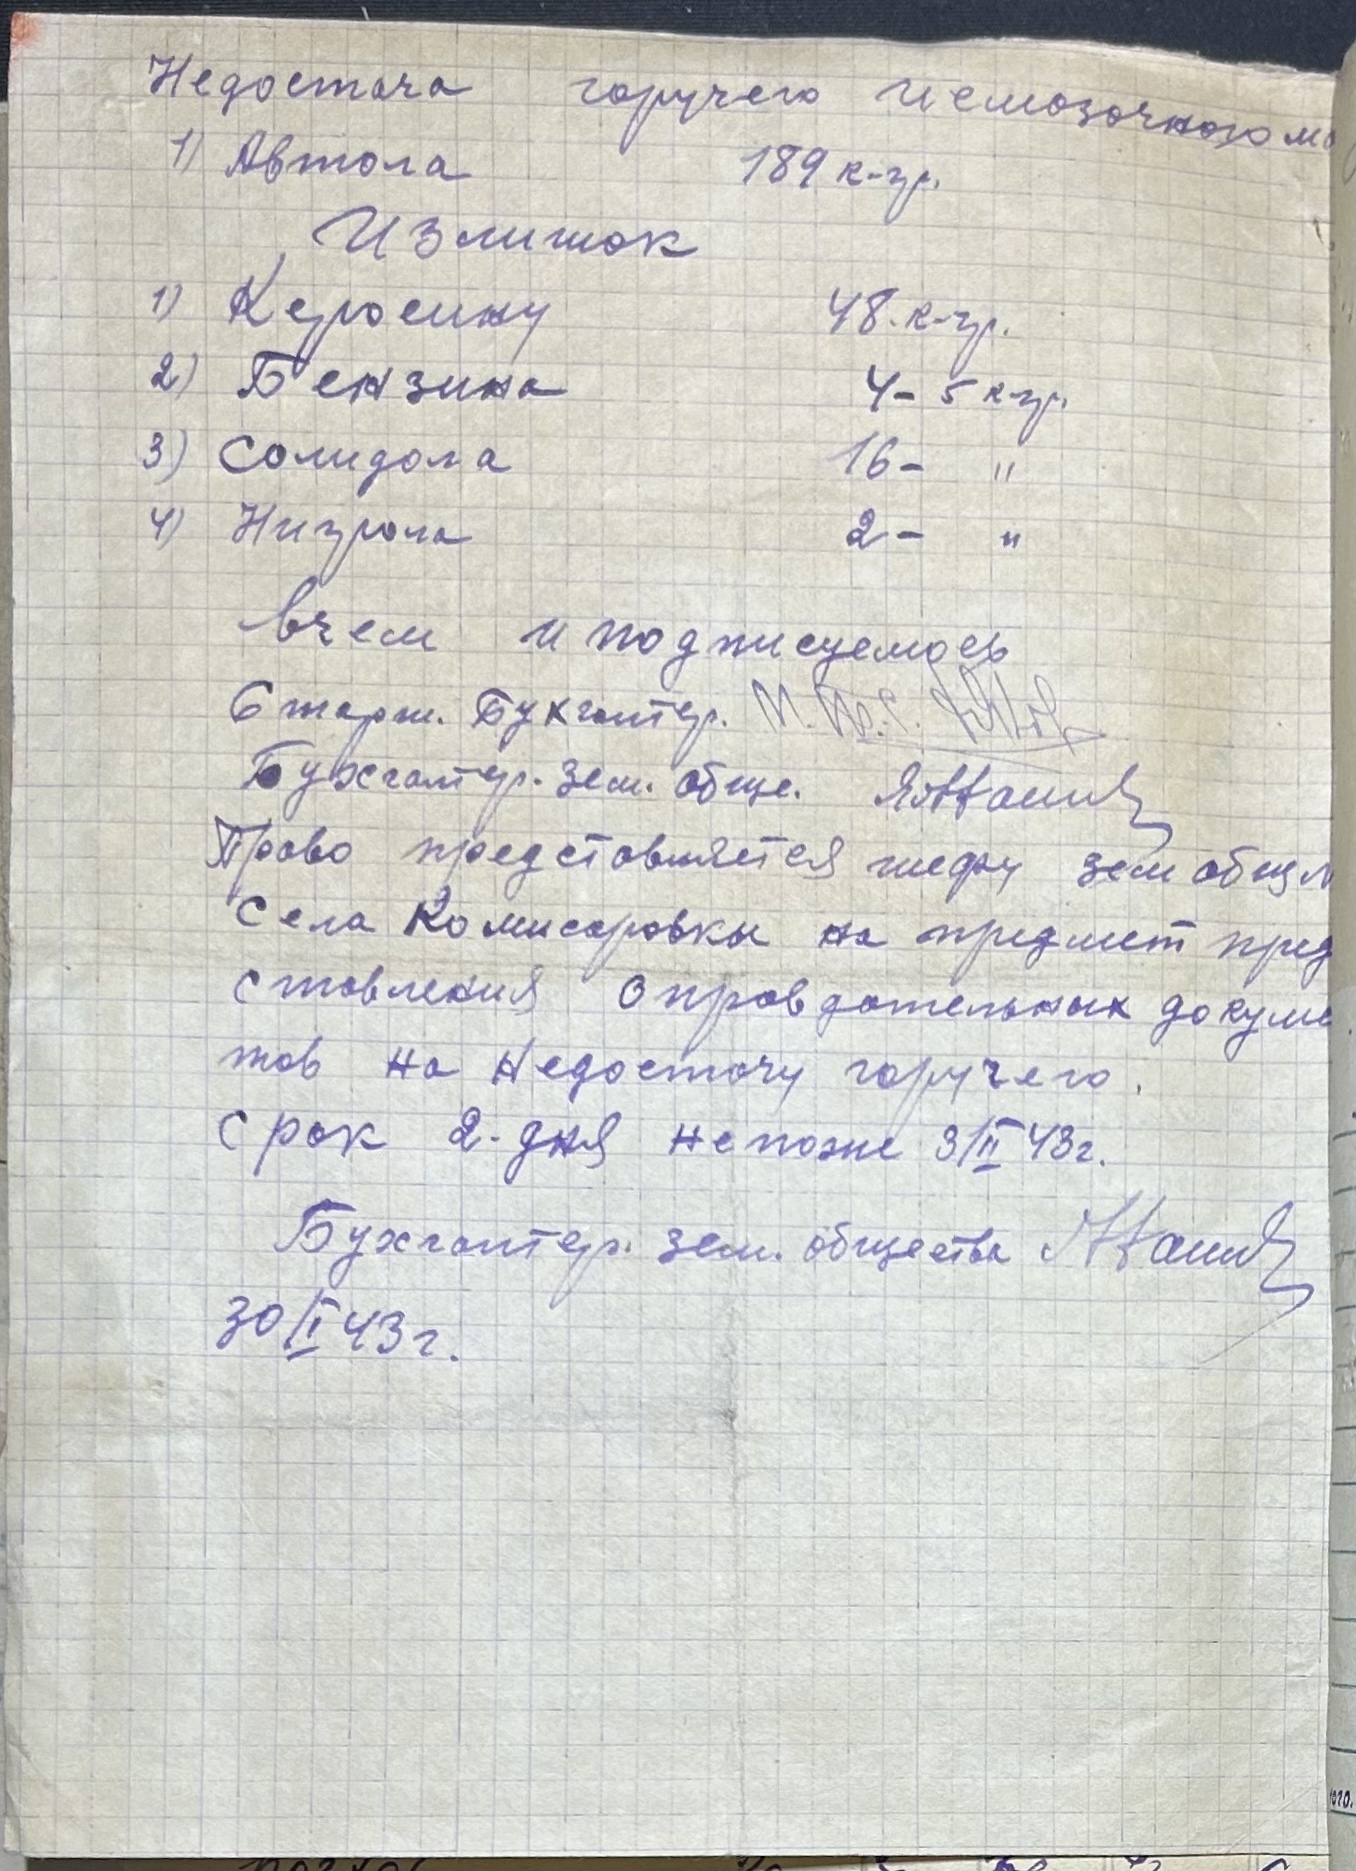 Недостача горучего исмозочного ма
1) Автола 189 к-гр.
Излишок
1) Керосину 48. к-гр.
2) Бензина 4 - 5 к-гр.
3) Солидола 16 - "
4) Нигрола 2 - "
вчем и подписуемось
Старш. Бухгалтер.
Бухгалтер. зем. обще.
Право представляется шефу зем общ
Села Комисаровки на предмет пред
ставления оправдательных докуме
тов на недостачу горучего.
срок 2-дня непоже 3/II 43г.
Бухгалтер. зем. общества
30/I 43г.